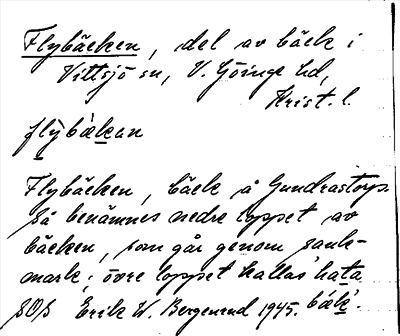 Flybäcken, del av bäck i
Vittsjö sn, V. Göinge hd,
Krist. l.
flybäkan
Flybäcken, bäck å Gundrastorp.
så benämnes nedre loppet av
bäcken, som går genom sank-
mark; övre loppet kallas hata
bäk.
SOS Erik W. Bergenrud 1945.